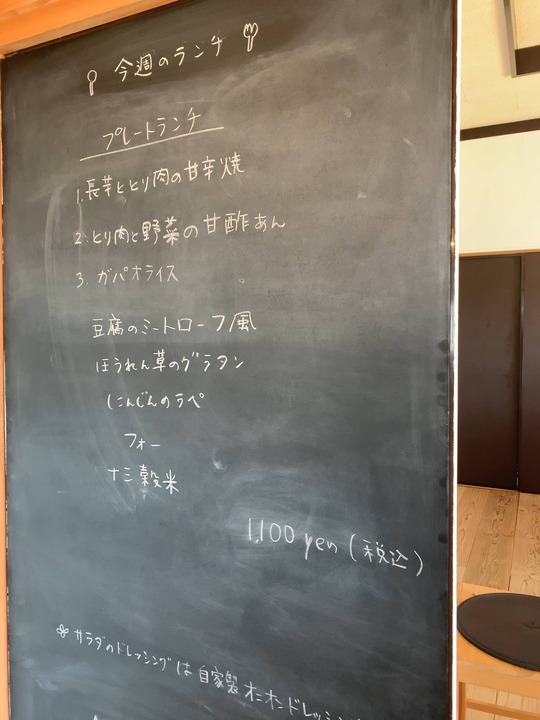 今週のランチ
プレートランチ
1. 長芋ととり肉の甘辛焼
2. とり肉と野菜の甘酢あん
3. ガパオライス
豆腐のミートローフ風
ほうれん草のグラタン
にんじんのラペ
フォー
十三穀米
1,100 yen (税込)
サラダのドレッシングは自家製オニオンドレッシング